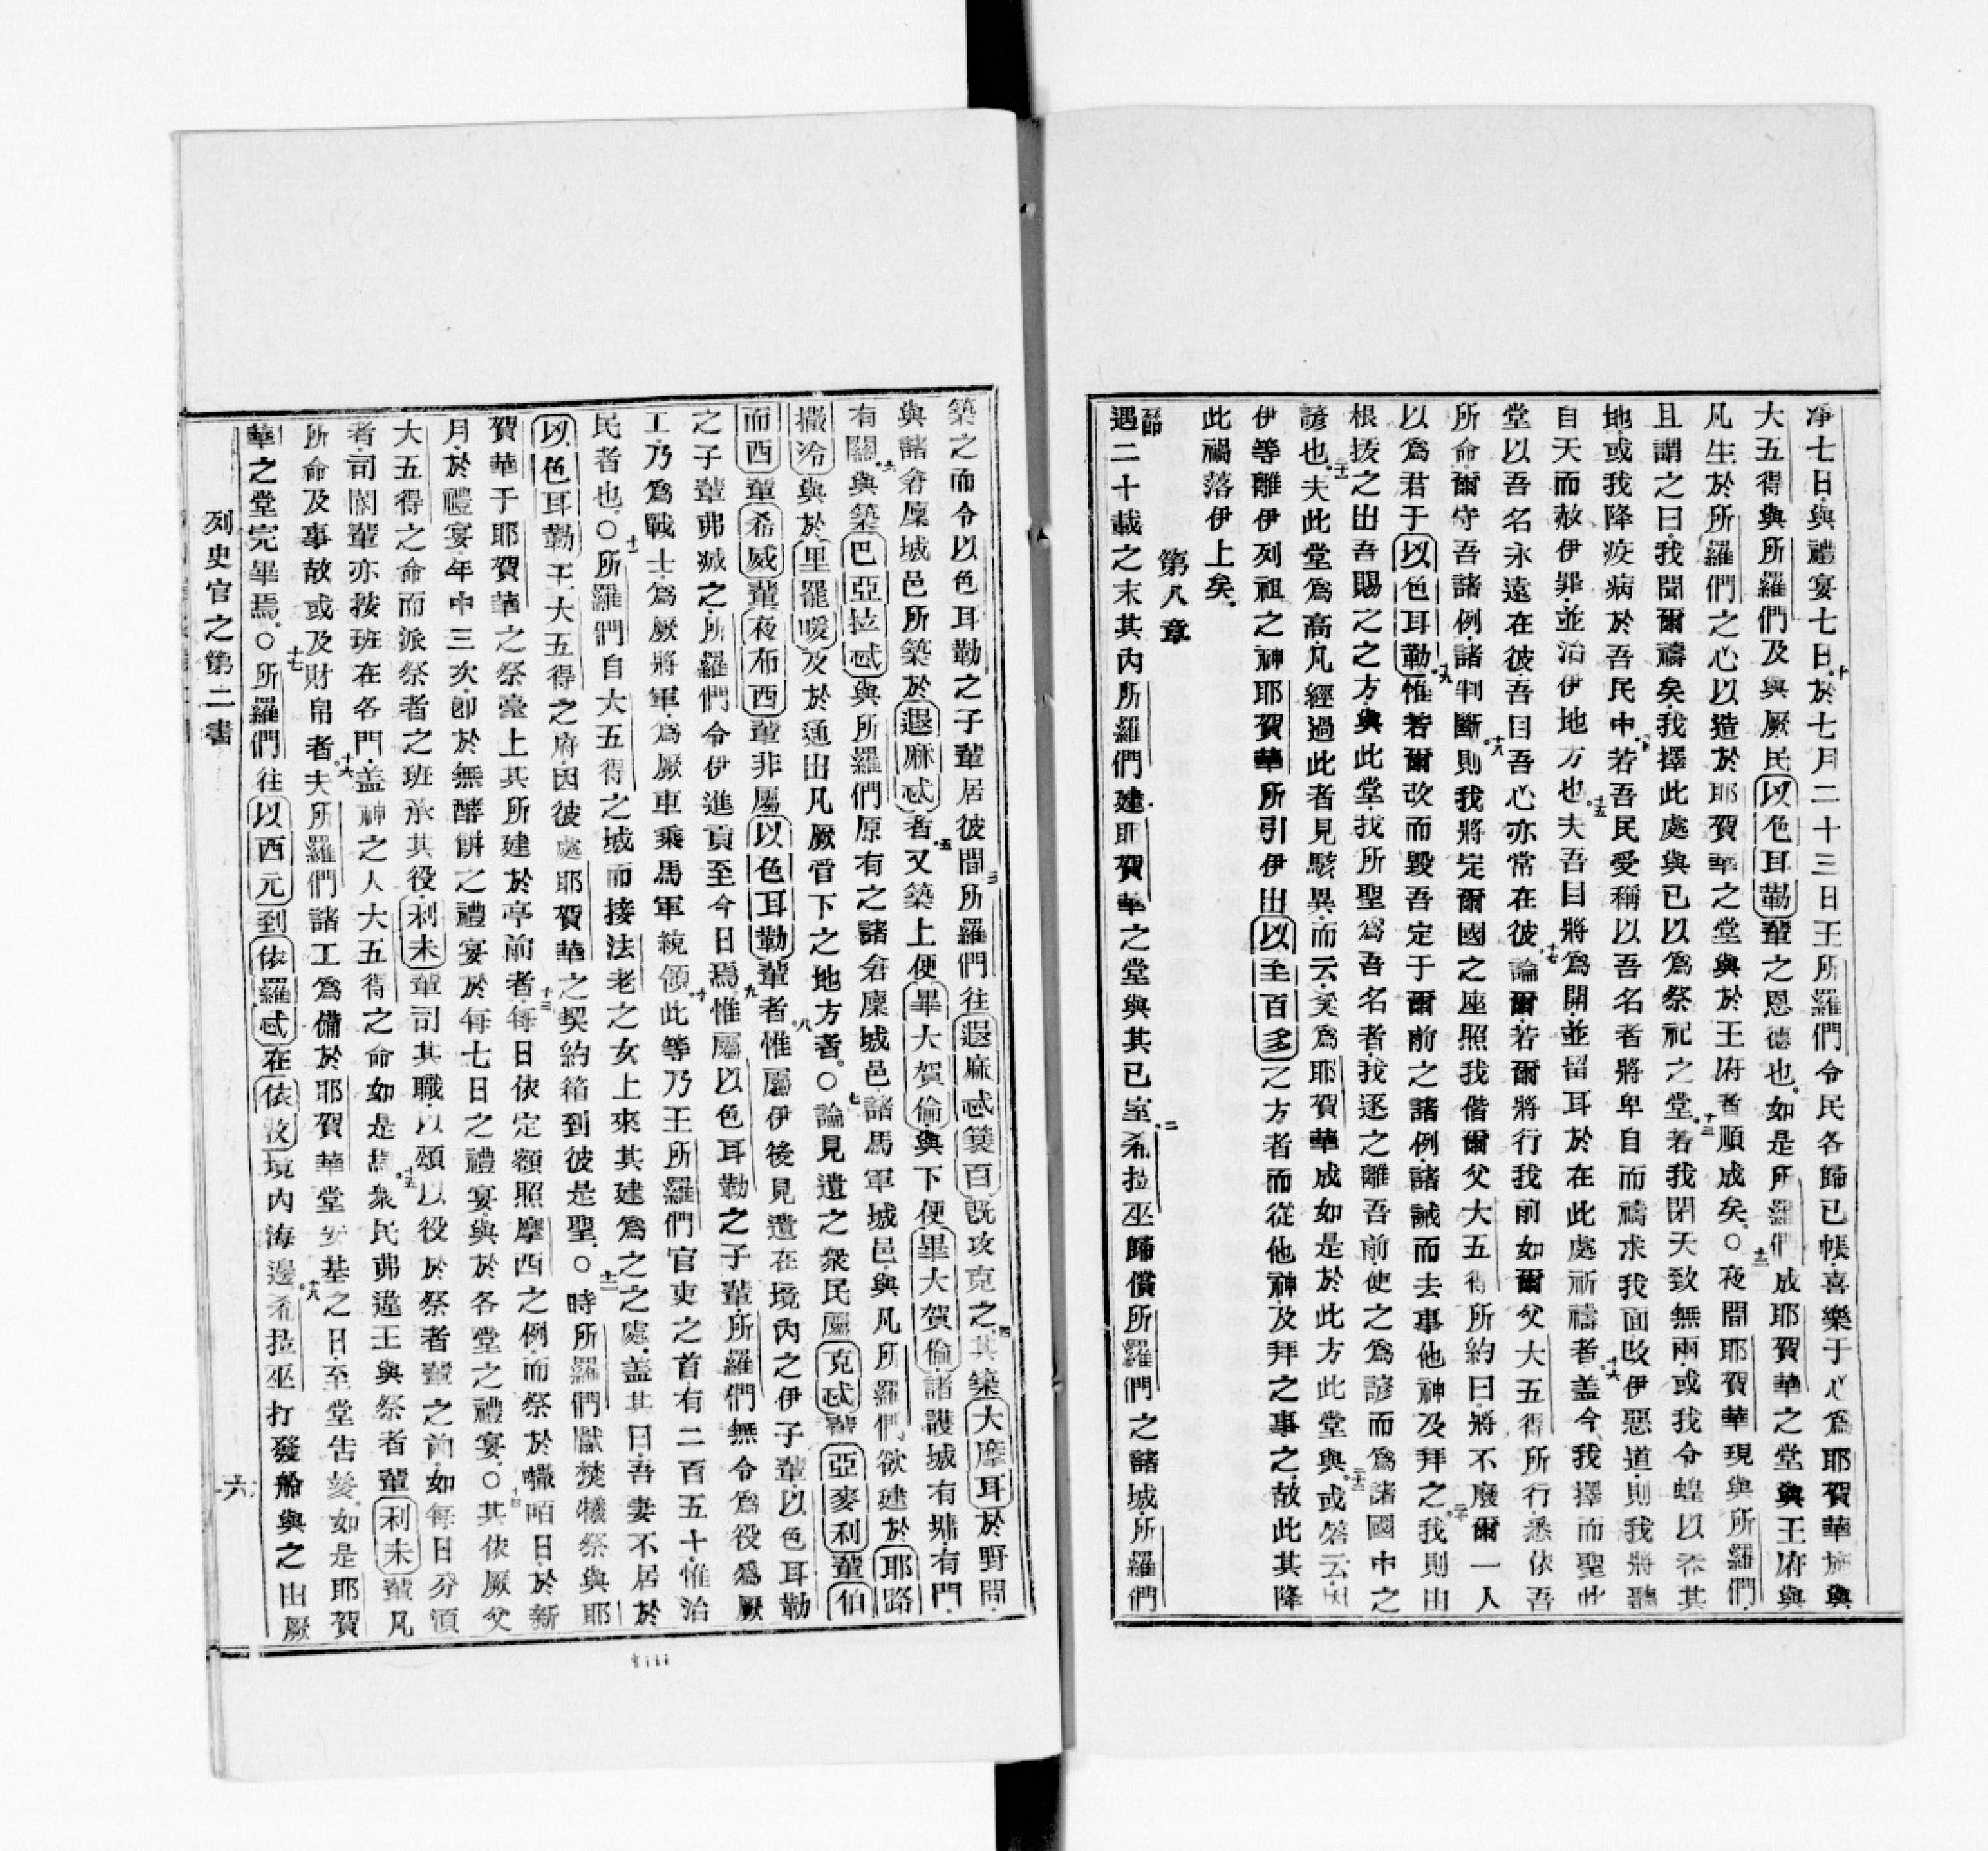 净七日與禮宴七日十於七月二十三日王所羅們令民各歸已帳喜樂于心爲耶賀華施與
大五得與所羅們及與厥民以色耳勒輩之恩德也十一如是所羅們成耶賀華之堂與王府與
凡生於所羅們之心以造於耶賀華之堂與於王府者順成矣○十二夜間耶賀華現與所羅們
且謂之曰我聞爾禱矣我擇此處與已以爲祭祀之堂十三若我閉天致無雨或我令蝗以吞其
地或我降疫病於吾民中十四若吾民愛稱以吾名者將卑自而禱求我面改伊惡道則我將聽
自天而赦伊罪並治伊地方也十五夫吾目將爲開並留耳於在此處祈禱者十六盖今我擇而聖此
堂以吾名永遠在彼吾目吾心亦常在彼十七論爾若爾將行我前如爾父大五得所行悉依吾
所命爾守吾諸例諸判斷十八則我將定爾國之座照我偕爾父大五得所約曰將不廢爾一人
以爲君于以色耳勒十九惟若爾改而毀吾定于爾前之諸例諸誡而去事他神及拜之二十我則由
根拔之出吾賜之之方與此堂我所聖爲吾名者我逐之離吾前使之爲諺而爲諸國中之
諺也二十一夫此堂爲高凡經過此者見駭異而云奚爲耶賀華成如是於此方此堂與二十二或答云因
伊等離伊列祖之神耶賀華所引伊出以至百多之方者而從他神及拜之事之故此其降
此禍落伊上矣
第八章
遇二十載之末其內所羅們建耶賀華之堂與其已室二希拉巫歸償所羅們之諸城所羅們
築之而令以色耳勒之子輩居彼間三所羅們往遐麻忒篓百既攻克之四其築大摩耳於野間
與諸倉廩城邑所築於遐麻忒者五又築上便畢大賀倫與下便畢大賀倫諸護城有墉有門
有關六與築巴亞拉忒與所羅們原有之諸倉廩城邑諸馬軍城邑與凡所羅們欲建於耶路
撒冷與於里罷暖及於通出凡厥管下之地方者○七論見遺之衆民屬克忒輩亞麥利輩伯
而西輩希威輩夜布西輩非屬以色耳勒輩者八惟屬伊後見遺在境內之伊子輩以色耳勒
之子輩弗滅之所羅們令伊進貢至今日焉九惟屬以色耳勒之子輩所羅們無令爲役爲厥
工乃爲戰士爲厥將軍爲厥車乘馬軍統領十此等乃王所羅們官吏之首有二百五十惟治
民者也○十一所羅們自大五得之城而接法老之女上來其建爲之之處盖其曰吾妻不居於
以色耳勒王大五得之府因彼處耶賀華之契約箱到彼是聖○十二時所羅們獻焚犧祭與耶
賀華于耶賀華之祭臺上其所建於亭前者十三每日依定額照摩西之例而祭於嚫哂日於新
月於禮宴年中三次卽於無酵餅之禮宴於每七日之禮宴與於各堂之禮宴○十四其依厥父
大五得之命而派祭者之班承其役利未輩司其職以頌以役於祭者輩之前如每日分須
者司閽輩亦按班在各門盖神之人大五得之命如是焉十五衆民弗違王與祭者輩利未輩凡
所命及事故或及財帛者十六夫所羅們諸工爲備於耶賀華堂安基之日至堂告竣如是耶賀
華之堂完畢焉○十七所羅們往以西元到依羅忒在依敦境內海邊十八希拉巫打發船與之由厥
列史官之第二書
六